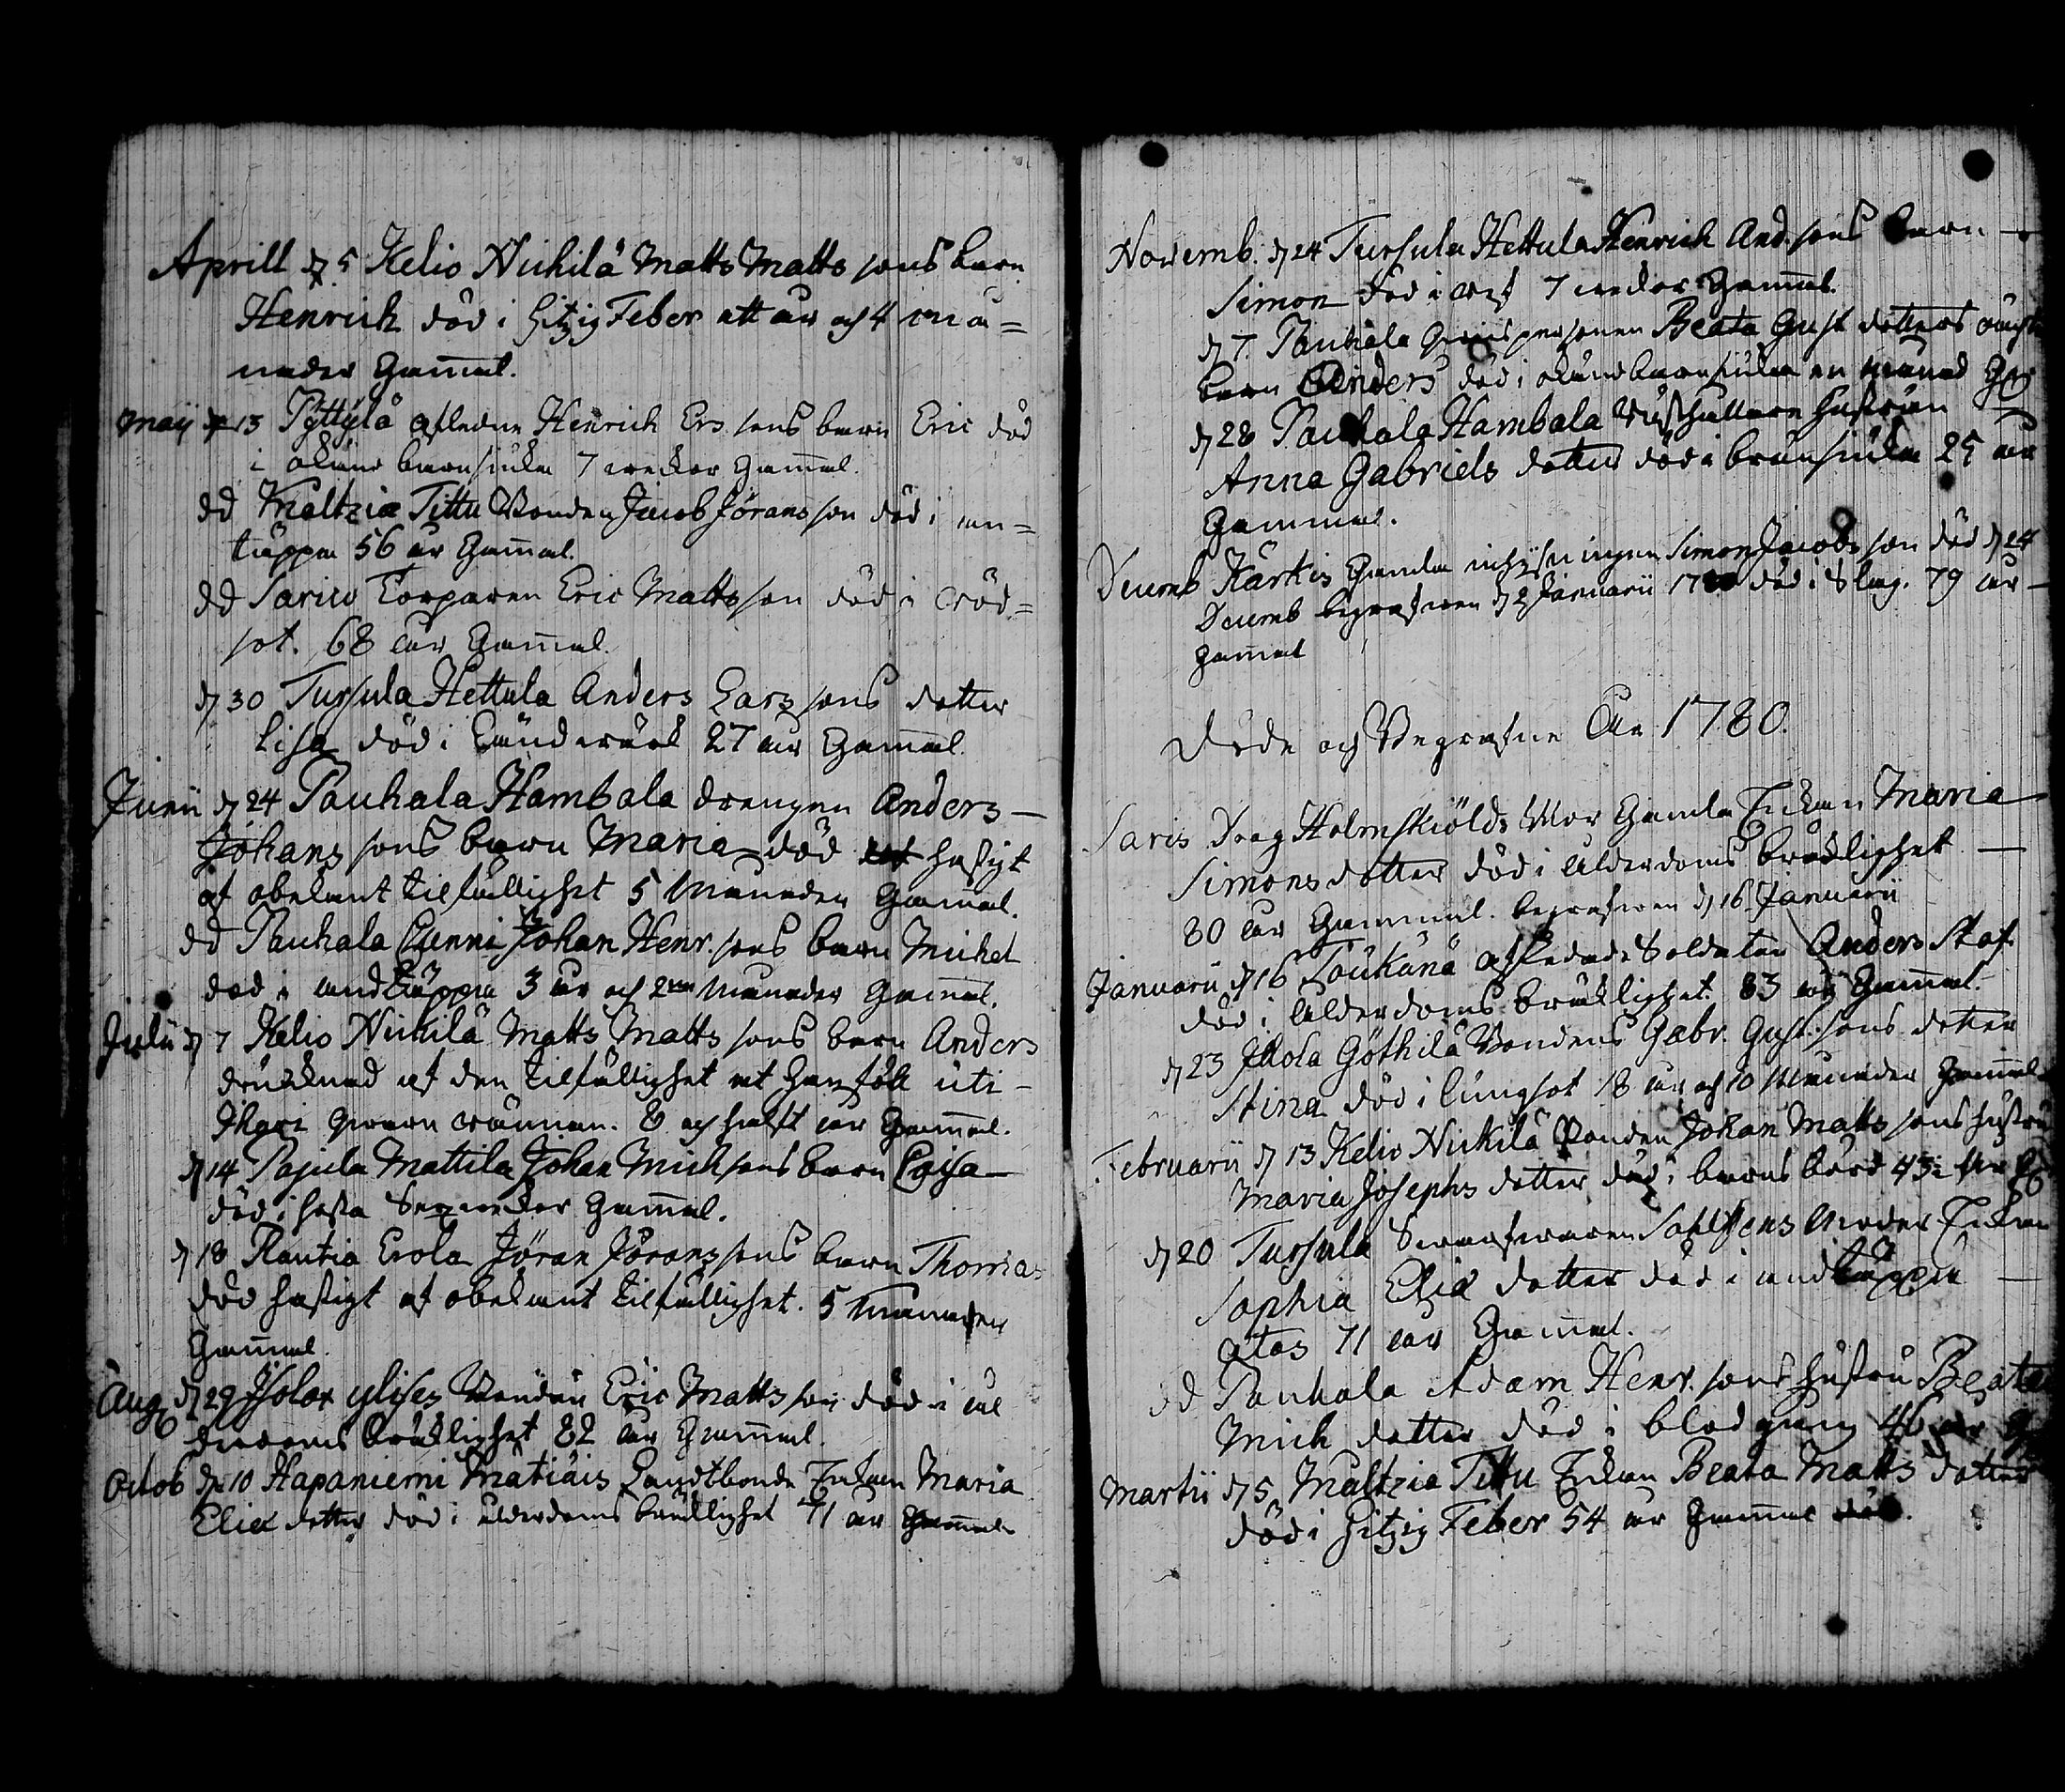 Aprill d 5 Kelio Nickilä Matts Matts sons barn
Henrich död i hitzig Feber ett år och 4 må=
nader Gammal.
Maij d 13 Pyttylä afledne Henrich Ers sons barn Eric död
i okänd barnsiuka 7 weckor Gammal.
dd Maltzia Tittu Bonden Jacob Jörans son död i an=
täppa 56 år Gammal.
dd Sarico Torparen Eric Matts son död i Röd=
sot. 68 åhr Gammal.
d 30 Tursula Hettula Anders Lars sons dotter
Lisa död i 27 åhr Gammal.
Junii d 24 Pauhala Hambala drengen Anders
Johans sons barn Maria död hastigt
af obekant tilfällighet 5 Månader Gammal.
dd Pauhala Cunni Johan Henr. sons barn Michel
död i andtäppa 3 år och 2 Månader Gammal.
Julii d 7 Kelio Nickilä Matts Matts sons barn Anders
druknad af den tilfällighet at han föll uti
Ihari qwarn rännan. 8 och halft åhr Gammal.
d 14 Pajula Mattila Johan Mich sons barn Caisa
död i hosta Sex weckor Gammal.
d 18 Rautia Erola Jöran Jörans sons barn Thomas
död hastigt af obekant tilfällighet. 5 Månader
Gammal.
Aug d 29 ylises Bonden Eric Matts son död i ål
derdoms bräcklighet 82 åhr Gammal.
Octob d 10 Hapaniemi Matiais Landtbonde Enkan Maria
Eliæ dotter död i ålderdoms bräcklighet 71 åhr Gammal
Novemb. d 24 Tursula Hettula Henrich And. sons barn
Simon död i 7 weckor Gammal.
d 7. Pauhala qwinspersonen Beata Gust dotters oächta
barn Anders död i okänd barnsiuka en månad G
d 28 Pauhala Hambala Rusthållare hustrun
Anna Gabriels dotter död i brännsiuka 25 åhr
Gammal.
Decemb Kärkis Gamla inhysingen Simon Jacobs son död d 24
Decemb begrafwen d 2 Januarii 1780 död i Slag. 79 åhr
gammal
Döde och Begrafne År 1780.
Saris Holmskiölds Mor Gamla Enkan Maria
Simons dotter död i ålderdoms bräcklighet
80 åhr Gammal. begrafwen d 16 Januarii
Januarii d 16 Toukana afskedade Soldaten Anders Staf
död i ålderdoms bräcklighet 83 åhr Gammal.
d 23 Göthila Bondens Gabr. Gust. sons dotter
Stina död i lungsot 18 åhr och 10 Månader Gammal
Februarii d 13 Kelio Nickilä Bonden Johan Matts sons hustru
Maria Josephs dotter död i barns börd 43 åhr G
d 20 Tursula Moder Enkan
Sophia Eliæ dotter död i andtäppa
71 åhr Gammal.
dd Pauhala Adam Henr. sons hustru Beata
Mich dotter död i blodgång 46 åhr G
Martii d 5 Maltzia Tittu Enkan Beata Matts dotter
död i hitzig Feber 54 åhr Gammal.